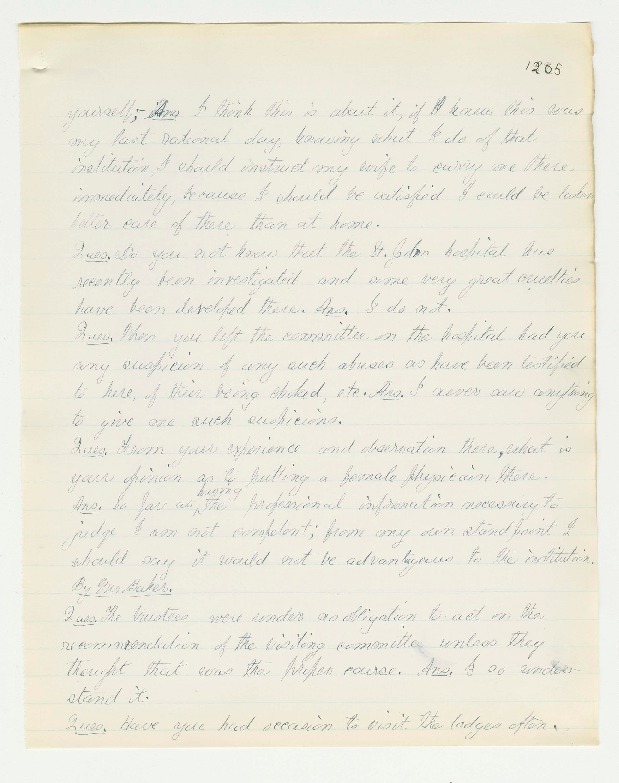 1205
yourself; Ans I think this is about it, if I knew this was
my last rational day, knowing what I do of that
institution, I should instruct my wife to carry me there
immediately, because I should be satisfied I could be taken
better care of there than at home.
Ques. Do you not know that the St. John hospital has
recently been investigated and some very great cruelties
have been developed there. Ans. I do not.
Ques. When you left the committee on the hospital had you
any suspicion of any such abuses as have been testified
to here, of their being choked, etc. Ans. I never saw anything
to give me such suspicions.
Ques. From your experience and observation there, what is
your opinion as to putting a female physician there.
Ans. So far as having the professional information necessary to
judge I am not competent; from my own stand point I
should say it would not be advantageous to the institution.
By Mr Baker.
Ques. The trustees were under no obligation to act on the
recommendation of the visiting committee unless they
thought that was the proper course. Ans. I so under-
stand it.
Ques. Have you had occasion to visit the lodges often.